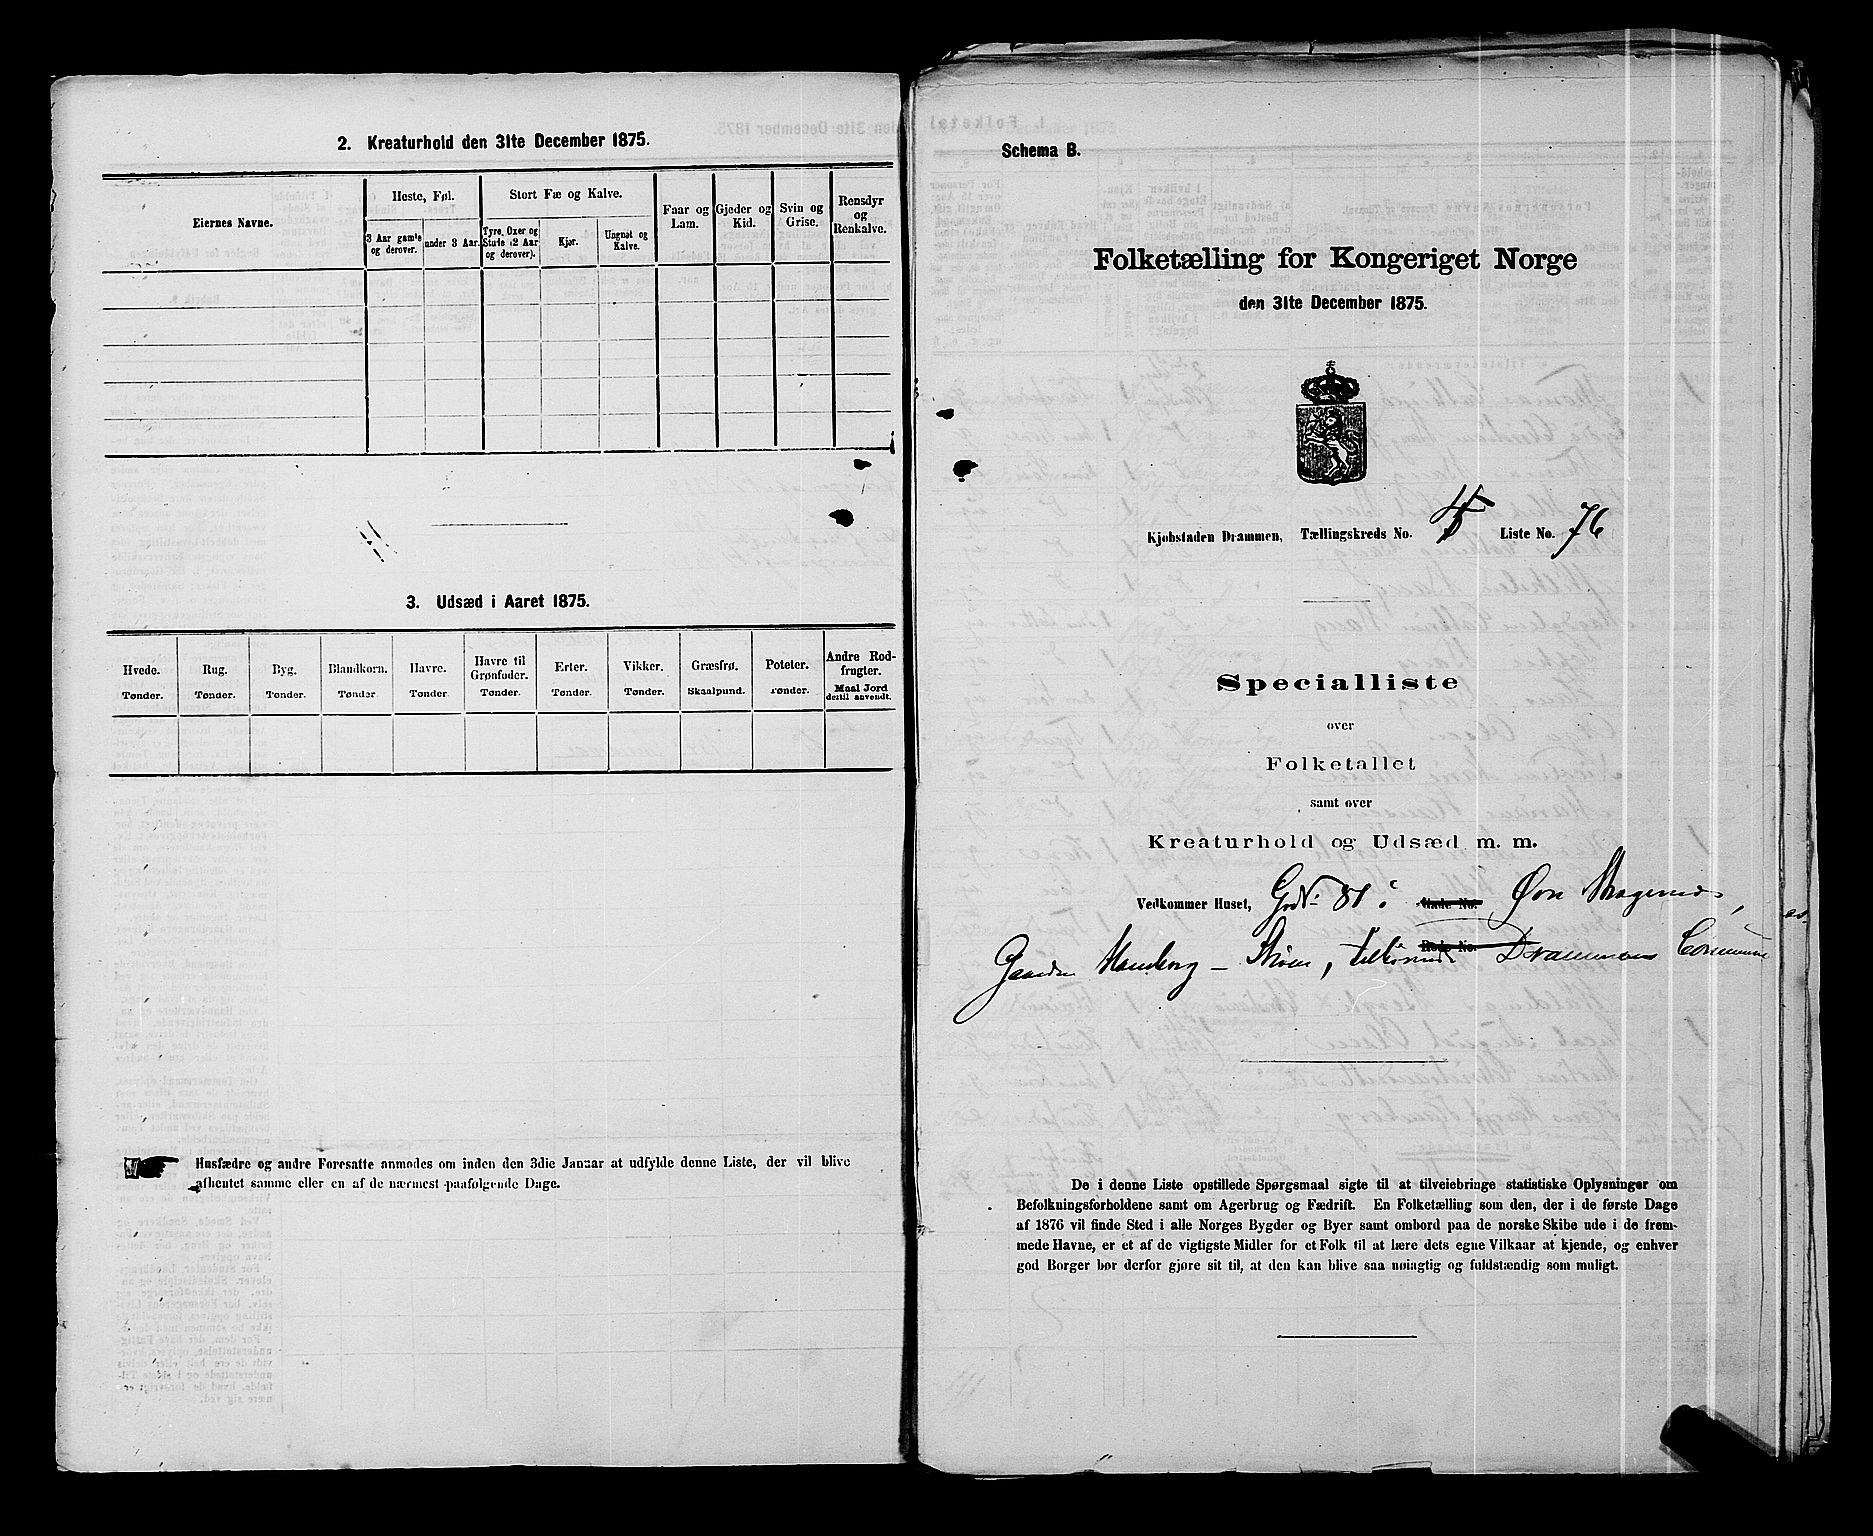 2. Kreaturhold den 31te December 1875.
Eiernes Navne.
Heste, Føl.
3 Aar gamle og derover.
under 3 Aar.
Stort Fæ og Kalve.
Tyre, Oxer og Stude (2 Aar og derover).
Kjør.
Ungnøt og Kalve.
Faar og Lam.
Gjeder og Kid.
Svin og Grise.
Rensdyr og Renkalve.
3. Udsæd i Aaret 1875.
Hvede. Tønder.
Rug. Tønder.
Byg. Tønder.
Blandkorn. Tønder
Havre. Tønder.
Havre til Grønfoder. Tønder.
Erter. Tønder.
Vikker. Tønder.
Græsfrø. Skaalpund.
Poteter. Tønder.
Andre Rodfrugter. Maal Jord dertil anvendt.
Husfædre og andre Foresatte anmodes om inden den 3die Januar at udfylde denne Liste, der vil blive
afhentet samme eller en af de nærmest paafølgende Dage.
Schema B.
Folketælling for Kongeriget Norge
den 31te December 1875.
Kjøbstaden Drammen, Tællingskreds No. 4 Liste No. 76
Specialliste
over
Folketallet
samt over
Kreaturhold og Udsæd m. m.
Vedkommer Huset, 81 i Gade No. Øvre
Rode No.
Gaarden Skoien, Drammens Commune
De i denne Liste opstillede Spørgsmaal sigte til at tilveiebringe statistiske Oplysninger om
Befolkningsforholdene samt om Agerbrug og Fædrift. En Folketælling som den, der i de første Dage
af 1876 vil finde Sted i alle Norges Bygder og Byer samt ombord paa de norske Skibe ude i de frem-
mede Havne, er et af de vigtigste Midler for et Folk til at lære dets egne Vilkaar at kjende, og enhver
god Borger bør derfor gjøre sit til, at den kan blive saa nøiagtig og fuldstændig som muligt.